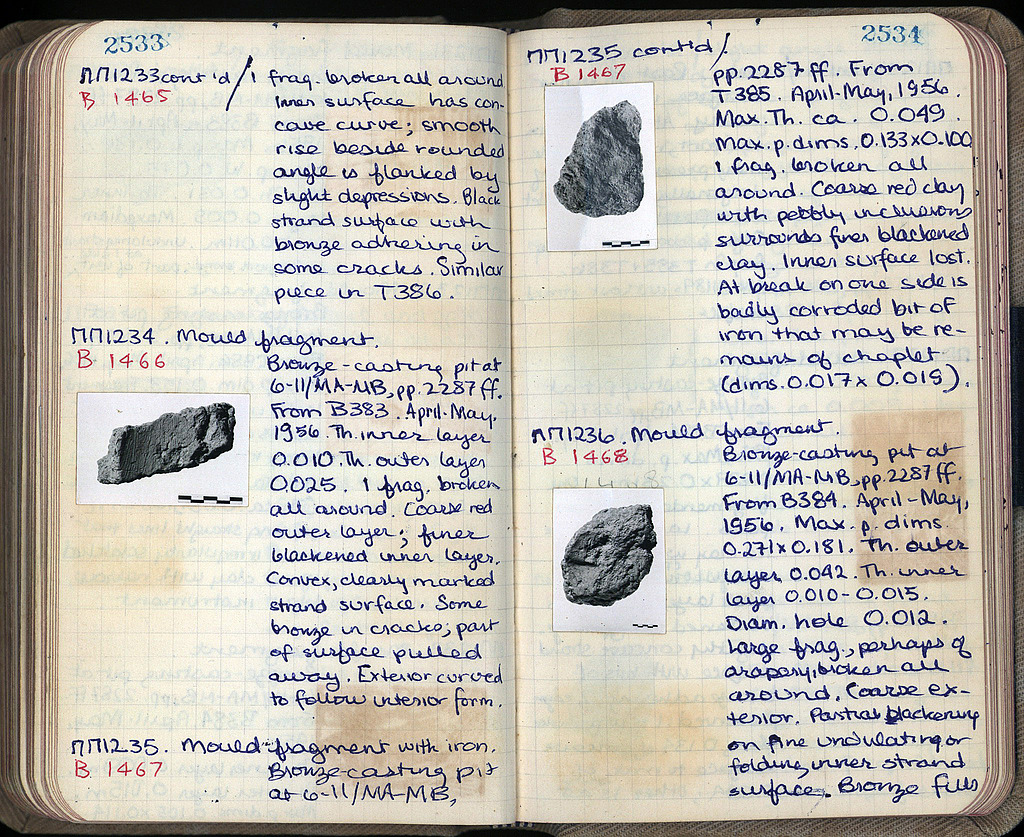 2533
ΠΠ1233 cont'd / 1 frag. broken all around
B 1465
Inner surface has con-
cave curve; smooth
rise beside rounded
angle is flanked by
slight depressions. Black
strand surface with
bronze adhering in
some cracks. Similar
piece in T386.
ΠΠ1234. Mould fragment.
B 1466
Bronze-casting pit at
6-11/MA-MB, pp. 2287 ff.
From B383. April-May,
1956. Th. inner layer
0.010. Th. outer layer
0.025. 1 frag. broken
all around. Coarse red
outer layer; finer
blackened inner layer.
Convex, clearly marked
strand surface. Some
bronze in cracks; part
of surface pulled
away. Exterior curved
to follow interior form.
ΠΠ1235. Mould fragment with iron.
B 1467
Bronze-casting pit
at 6-11/MA-MB,
2534
ΠΠ1235 cont'd /
B 1467
pp. 2287 ff. From
T385. April-May, 1956.
Max. Th. ca. 0.049.
Max. p. dims. 0.133x0.100
1 frag. broken all
around. Coarse red clay
with pebbly inclusions
surrounds finer blackened
clay. Inner surface lost.
At break on one side is
badly corroded bit of
iron that may be re-
mains of chaplet
(dims. 0.017x 0.015).
ΠΠ1236. Mould fragment.
B 1468
Bronze-casting pit at
6-11/MA-MB, pp. 2287 ff.
From B384. April-May,
1956. Max. p. dims.
0.271x0.181. Th. outer
layer 0.042. Th. inner
layer 0.010-0.015.
Diam. hole 0.012.
Large frag., perhaps of
drapery, broken all
around. Coarse ex-
terior. Partial blackening
on fine undulating or
folding inner strand
surface. Bronze fills